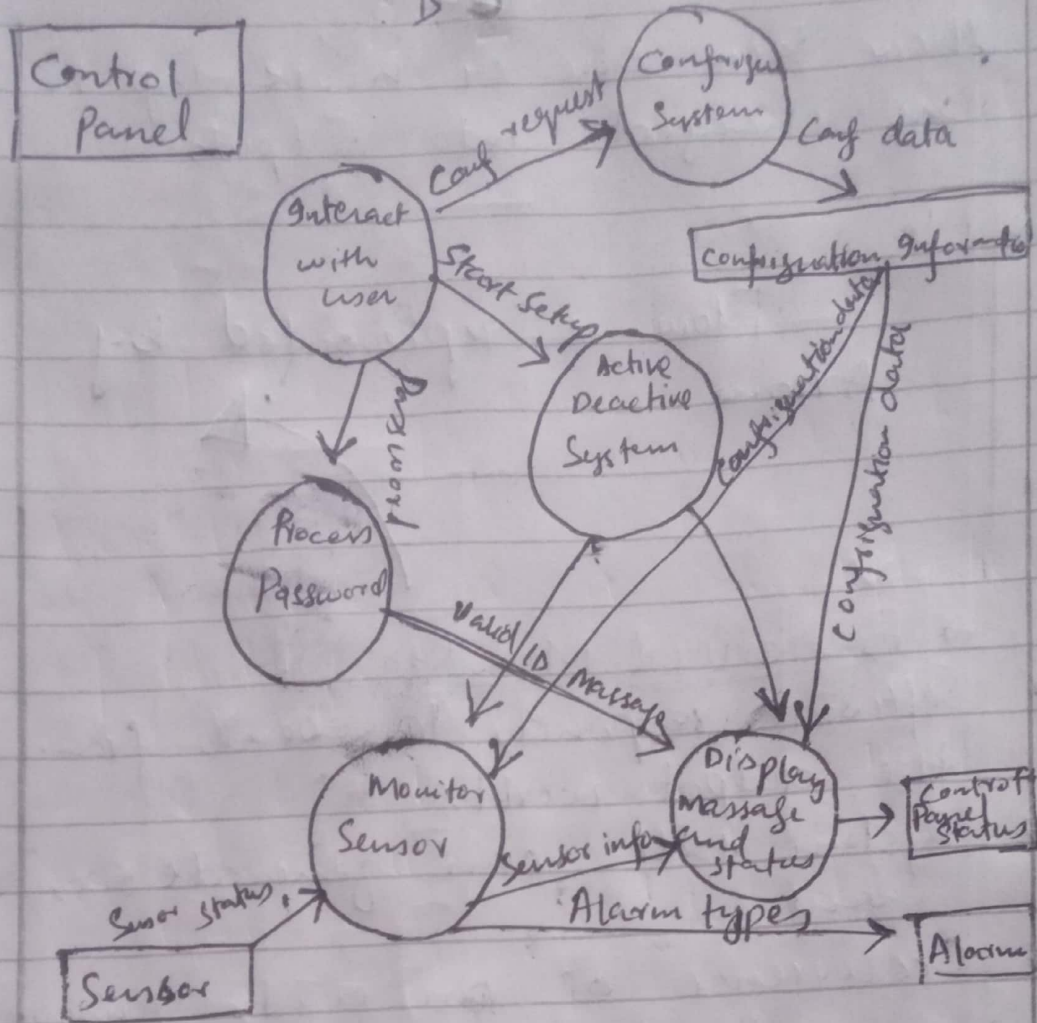 Control
Panel
Configure
System
Conf request
Conf data
Interact
with
user
Start Setup
Configuation Informatio
Active
Deactive
System
Password
Configuation data
Configuation data
Process
Password
Valid ID Massage
Monitor
Sensor
Display
Massage
and
status
Control
Panel
Status
Sensor info
Sensor status.
Alarm types
Sensor
Alarm